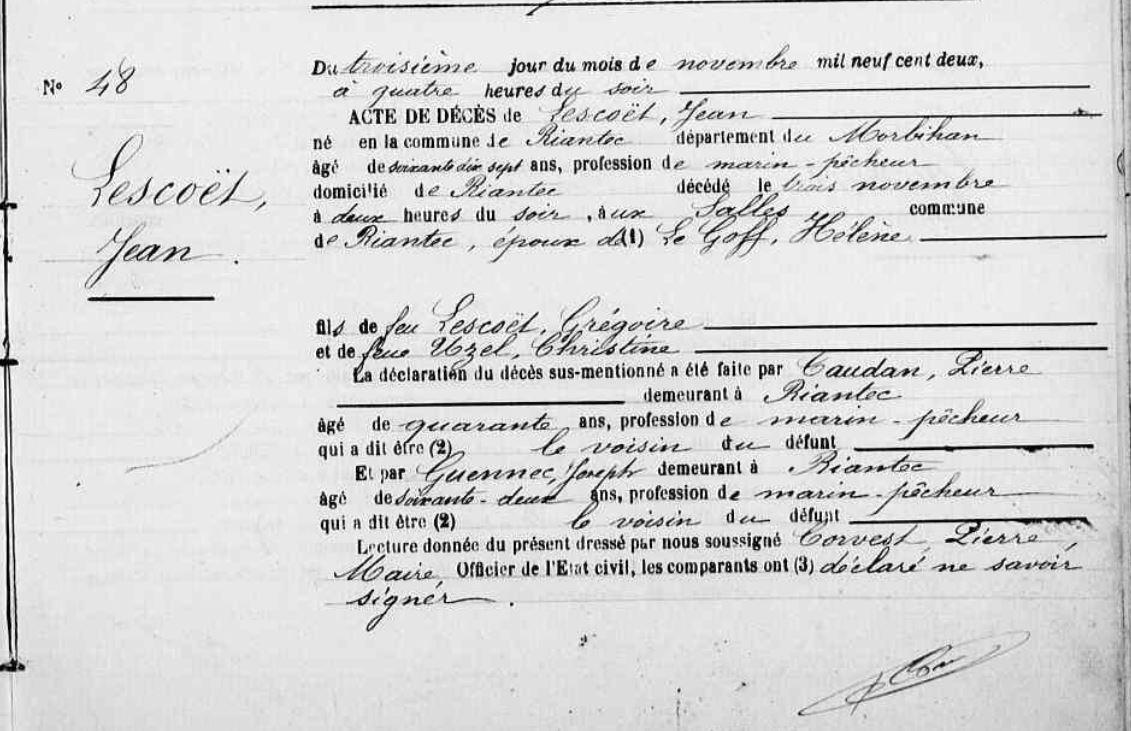 Du troisième jour du mois de novembre mil neuf cent deux,
No 48
à quatre heures du soir
ACTE DE DÉCÈS de Lescoët, Jean
né en la commune de Riantec département du Morbihan
Lescoët,
âgé de soixante dix sept ans, profession de marin-pêcheur
domicilié de Riantec décédé le trois novembre
à deux heures du soir, aux Salles commune
Jean.
de Riantec, époux de (1) Le Goff, Hélène
fils de feu Lescoët, Grégoire
et de feue Uzel, Christine
La déclaration du décès sus-mentionné a été faite par Caudan, Pierre
demeurant à Riantec
âgé de quarante ans, profession de marin-pêcheur
qui a dit être (2) le voisin du défunt
Et par Guennec, Joseph demeurant à Riantec
âgé de soixante-deux ans, profession de marin-pêcheur
qui a dit être (2) le voisin du défunt
Lecture donnée du présent dressé par nous soussigné Corvest, Pierre,
Maire, Officier de l'Etat civil, les comparants ont (3) déclaré ne savoir
signer.